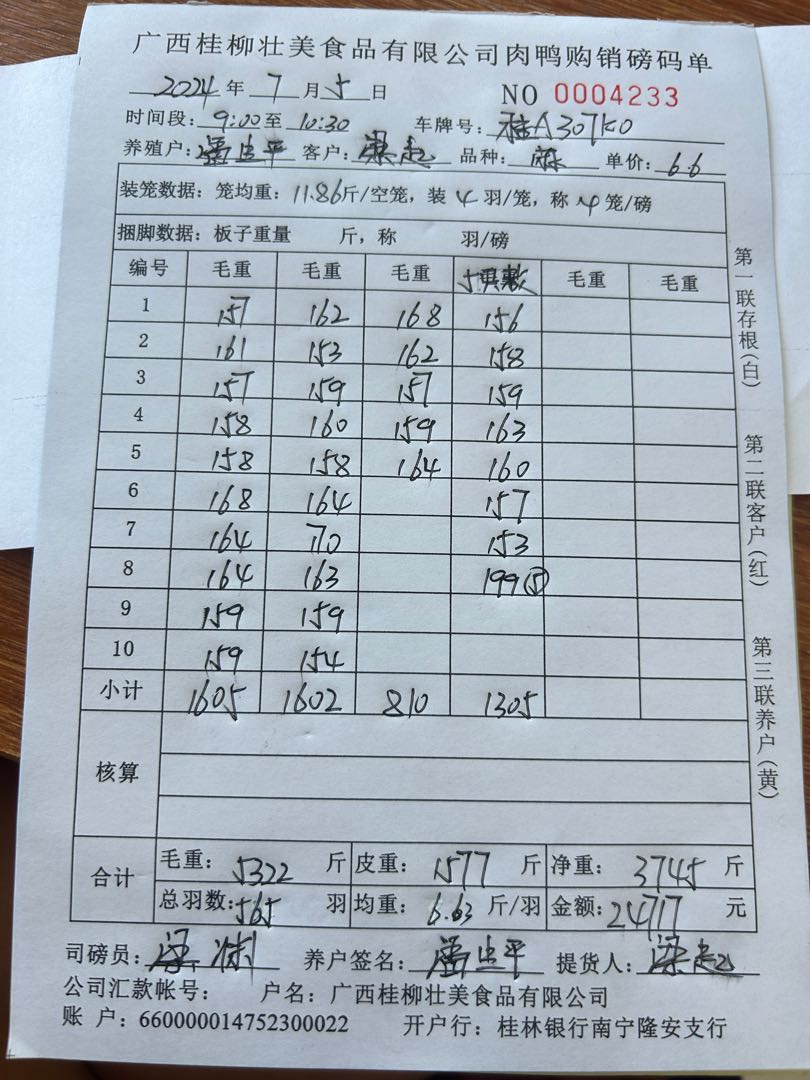 广西桂柳壮美食品有限公司肉鸭购销磅码单
2024年 7 月 5 日 NO 0004233
时间段: 9:00至 10:30 车牌号: 桂A307K0
养殖户: 客户: 梁 品种: 麻 单价: 6.6
装笼数据: 笼均重: 11.86斤/空笼, 装 4 羽/笼, 称 4 笼/磅
捆脚数据: 板子重量 斤, 称 羽/磅
编号 毛重 毛重 毛重 毛重 毛重
1 157 162 168 156
2 161 153 162 158
3 157 159 157 159
4 158 160 159 163
5 158 158 164 160
6 168 164 157
7 164 170 153
8 164 163 199⑤
9 159 159
10 159 154
小计 1605 1602 810 1305
核算
合计 毛重: 5322 斤 皮重: 1577 斤 净重: 3745 斤
总羽数: 565 羽 均重: 6.63 斤/羽 金额: 24717 元
司磅员: 养户签名: 提货人: 梁
公司汇款帐号: 户名: 广西桂柳壮美食品有限公司
账 户: 660000014752300022 开户行: 桂林银行南宁隆安支行
第一联存根(白)
第二联客户(红)
第三联养户(黄)